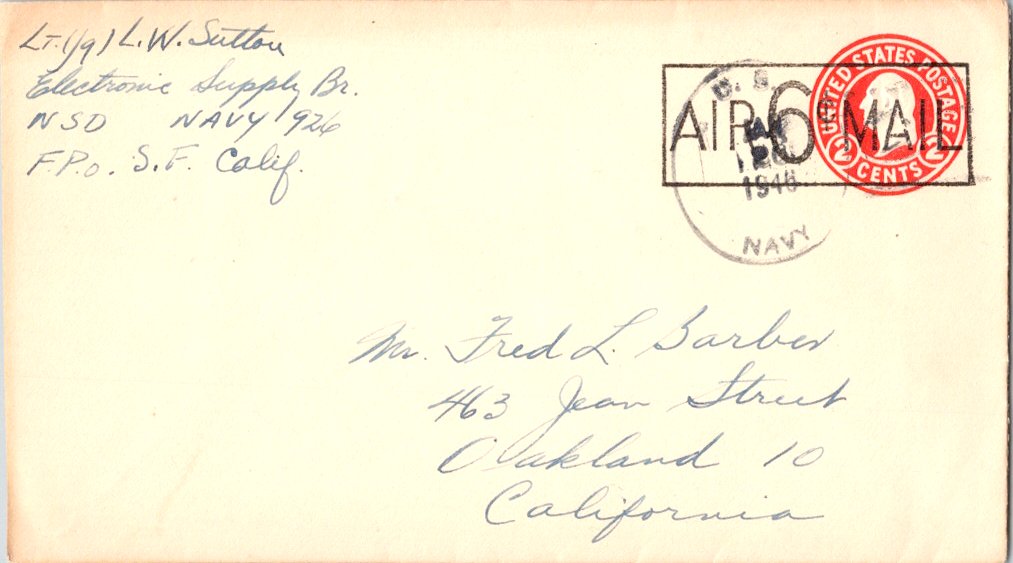 Lt. (jg) L. W. Sutton
Electronic Supply Br.
NSD NAVY 926
F.P.O. S.F. Calif.
UNITED STATES POSTAGE
2 CENTS 2
AIR 6¢ MAIL
U. S.
1946
NAVY
Mr. Fred L. Barber
463 Jean Street
Oakland 10
California